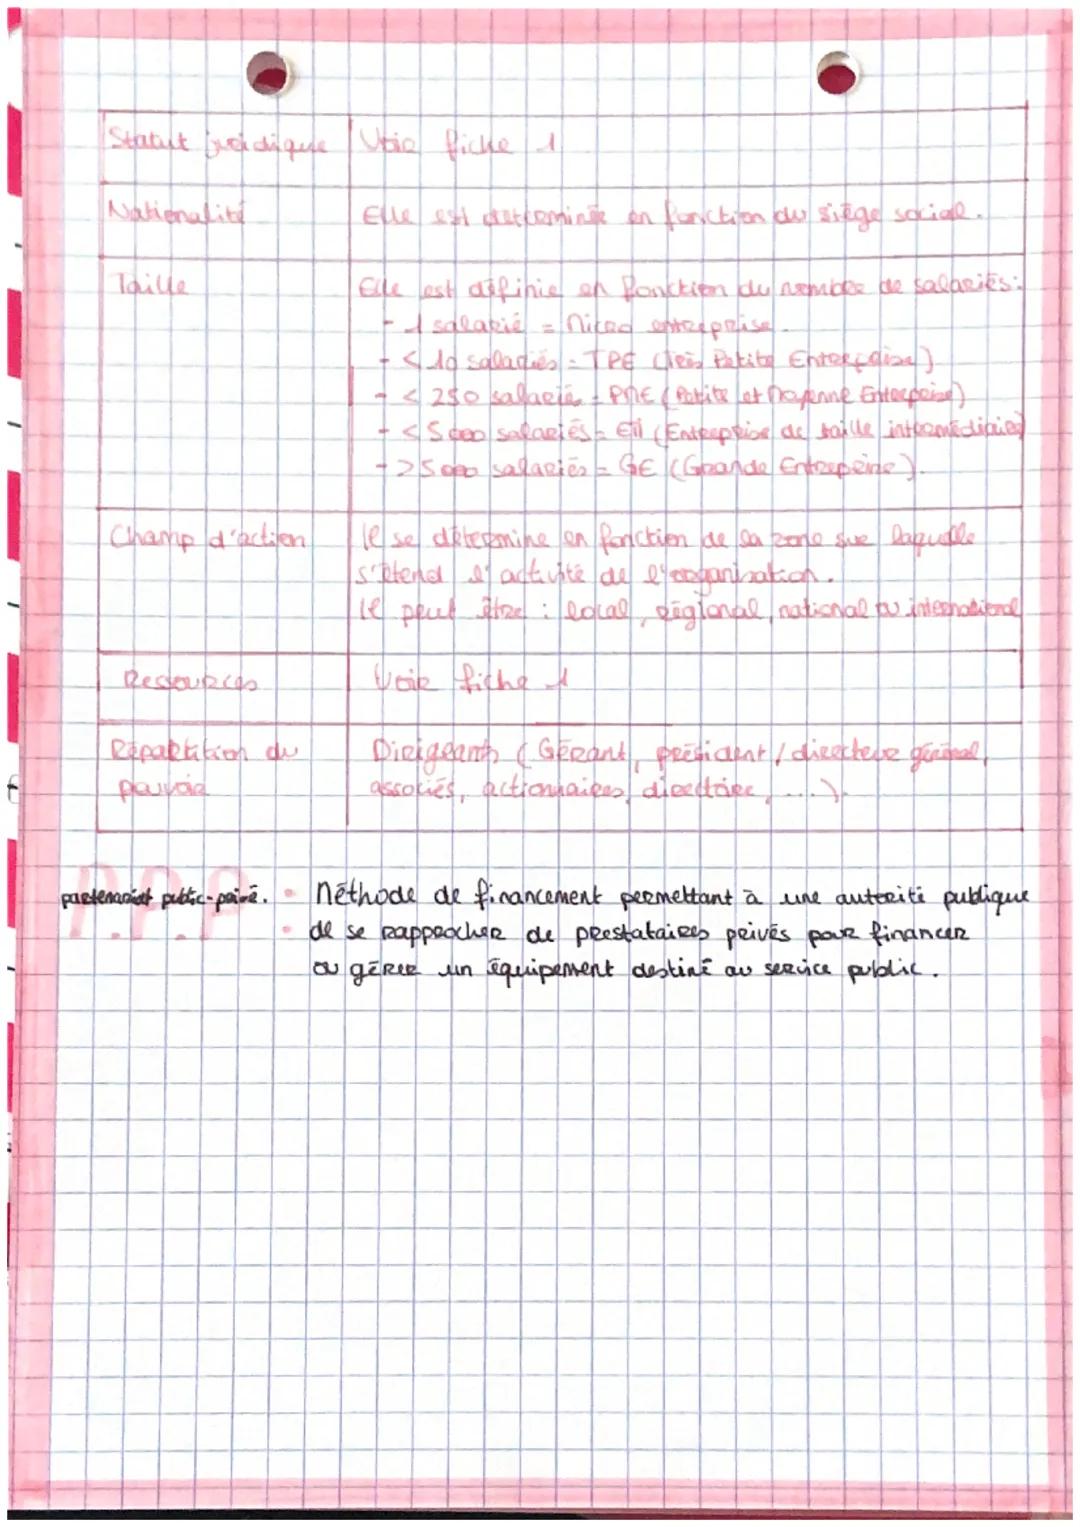 Statut juridique Voir fiche 1
Nationalité Elle est determinée en fonction du siège social.
Taille Elle est définie en fonction du nombre de salariés:
- 1 salarié = Micro entreprise.
- < 10 salariés = TPE (Très Petite Entreprise)
- < 250 salariés = PME (Petite et Moyenne Entreprise)
- < 5 000 salariés = ETI (Entreprise de taille intermédiaire)
- > 5 000 salariés = GE (Grande Entreprise).
Champ d'action Il se détermine en fonction de la zone sur laquelle
s'étend l'activité de l'organisation.
Il peut être : local, régional, national ou international
Ressources Voir fiche 1
Répartition du Dirigeants (Gérant, président / directeur général,
pouvoir associés, actionnaires, directoire, ...).
P.P.P
partenariat public-privé. : Méthode de financement permettant à une autorité publique
de se rapprocher de prestataires privés pour financer
ou gérer un équipement destiné au service public.